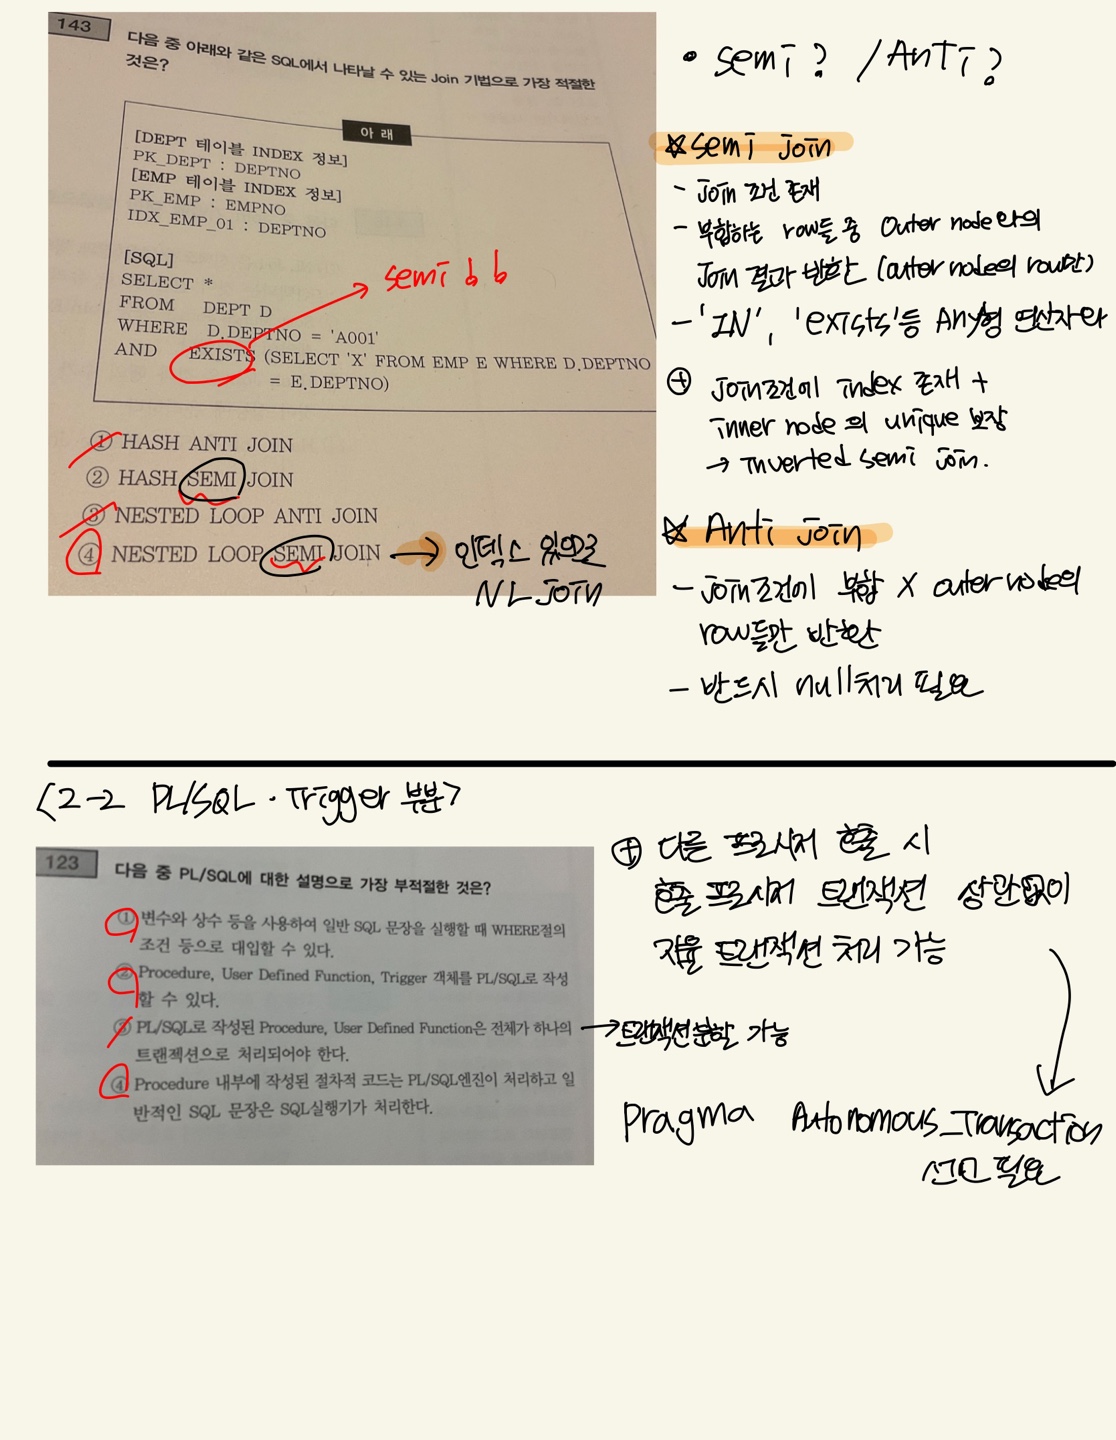 143
다음 중 아래와 같은 SQL에서 나타날 수 있는 Join 기법으로 가장 적절한
것은?
아 래
[DEPT 테이블 INDEX 정보]
PK_DEPT : DEPTNO
[EMP 테이블 INDEX 정보]
PK_EMP : EMPNO
IDX_EMP_01 : DEPTNO
[SQL]
SELECT *
FROM DEPT D
WHERE D.DEPTNO = 'A001'
AND EXISTS (SELECT 'X' FROM EMP E WHERE D.DEPTNO
= E.DEPTNO)
semi
① HASH ANTI JOIN
② HASH SEMI JOIN
③ NESTED LOOP ANTI JOIN
④ NESTED LOOP SEMI JOIN → 인덱스 있으므로
NL JOIN
• semi? /Anti?
☆semi join
- join 조건 존재
- 부합하는 row들 중 Outer node와의
Join 결과 반환 (outer node의 row만)
- 'IN', 'exists'등 Any형 연산자와
⊕ Join조건에 index 존재 +
inner node의 unique 보장
→ Inverted semi join.
☆ Anti join
- join조건에 부합 X outer node의
row들만 반환
- 반드시 null처리 필요
<2-2 PL/SQL · Trigger 부분>
123
다음 중 PL/SQL에 대한 설명으로 가장 부적절한 것은?
① 변수와 상수 등을 사용하여 일반 SQL 문장을 실행할 때 WHERE절의
조건 등으로 대입할 수 있다.
② Procedure, User Defined Function, Trigger 객체를 PL/SQL로 작성
할 수 있다.
③ PL/SQL로 작성된 Procedure, User Defined Function은 전체가 하나의
트랜젝션으로 처리되어야 한다.
→트랜잭션분할 가능
④ Procedure 내부에 작성된 절차적 코드는 PL/SQL엔진이 처리하고 일
반적인 SQL 문장은 SQL실행기가 처리한다.
⊕ 다른 프로시저 호출 시
호출 프로시저 트랜잭션 상관없이
자율 트랜잭션 처리 가능
Pragma Autonomous_Transaction
선언 필요